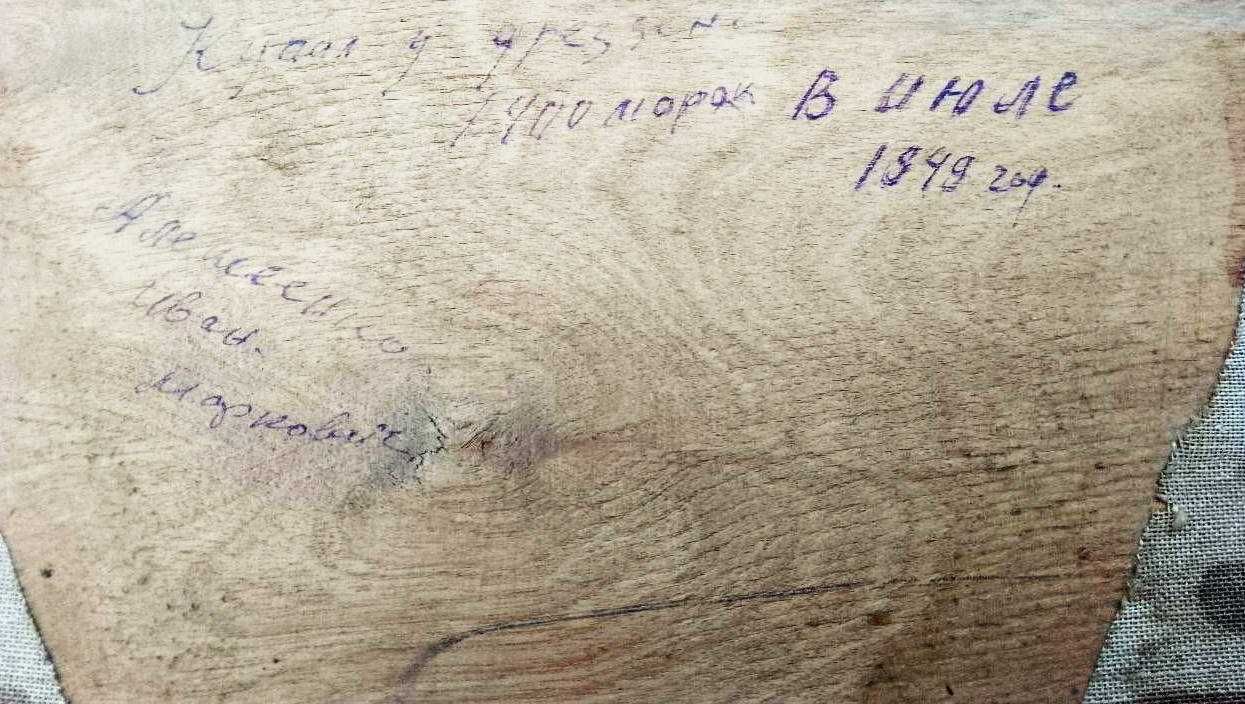 Купил у
1400 марок В июле
1949 год.
Алексеенко
Иван.
Маркович